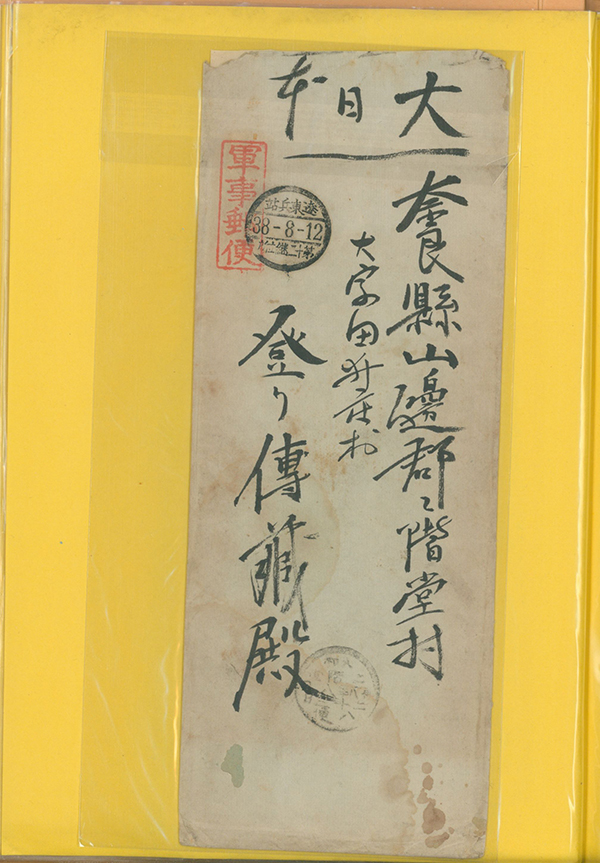 大日本
奈良縣山邊郡二階堂村
大字田井庄村
登り傳藏殿
軍事郵便
遼東兵站
38-8-12